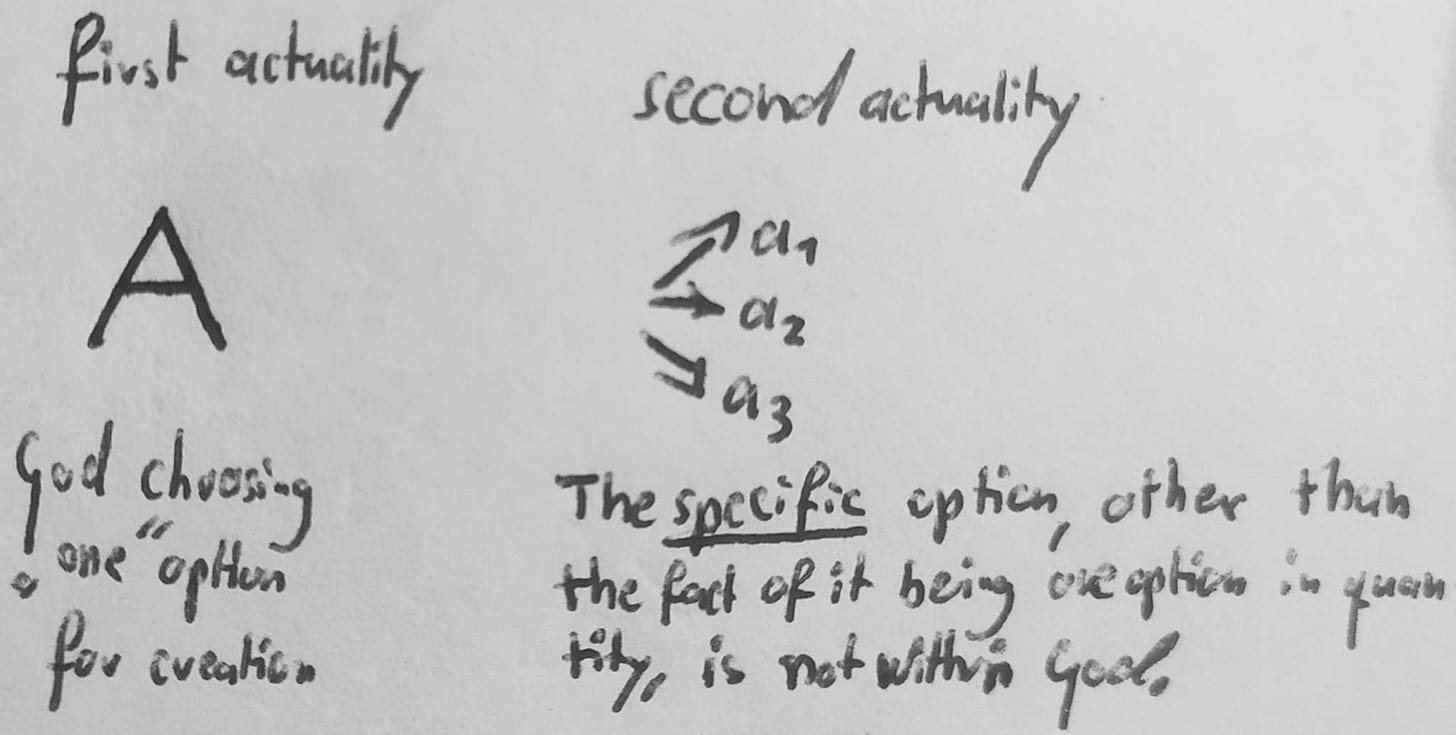 first actuality
second actuality
A
a1
a2
a3
God choosing
„one" option
for creation
The specific option, other than
the fact of it being one option in quan
tity, is not within God.